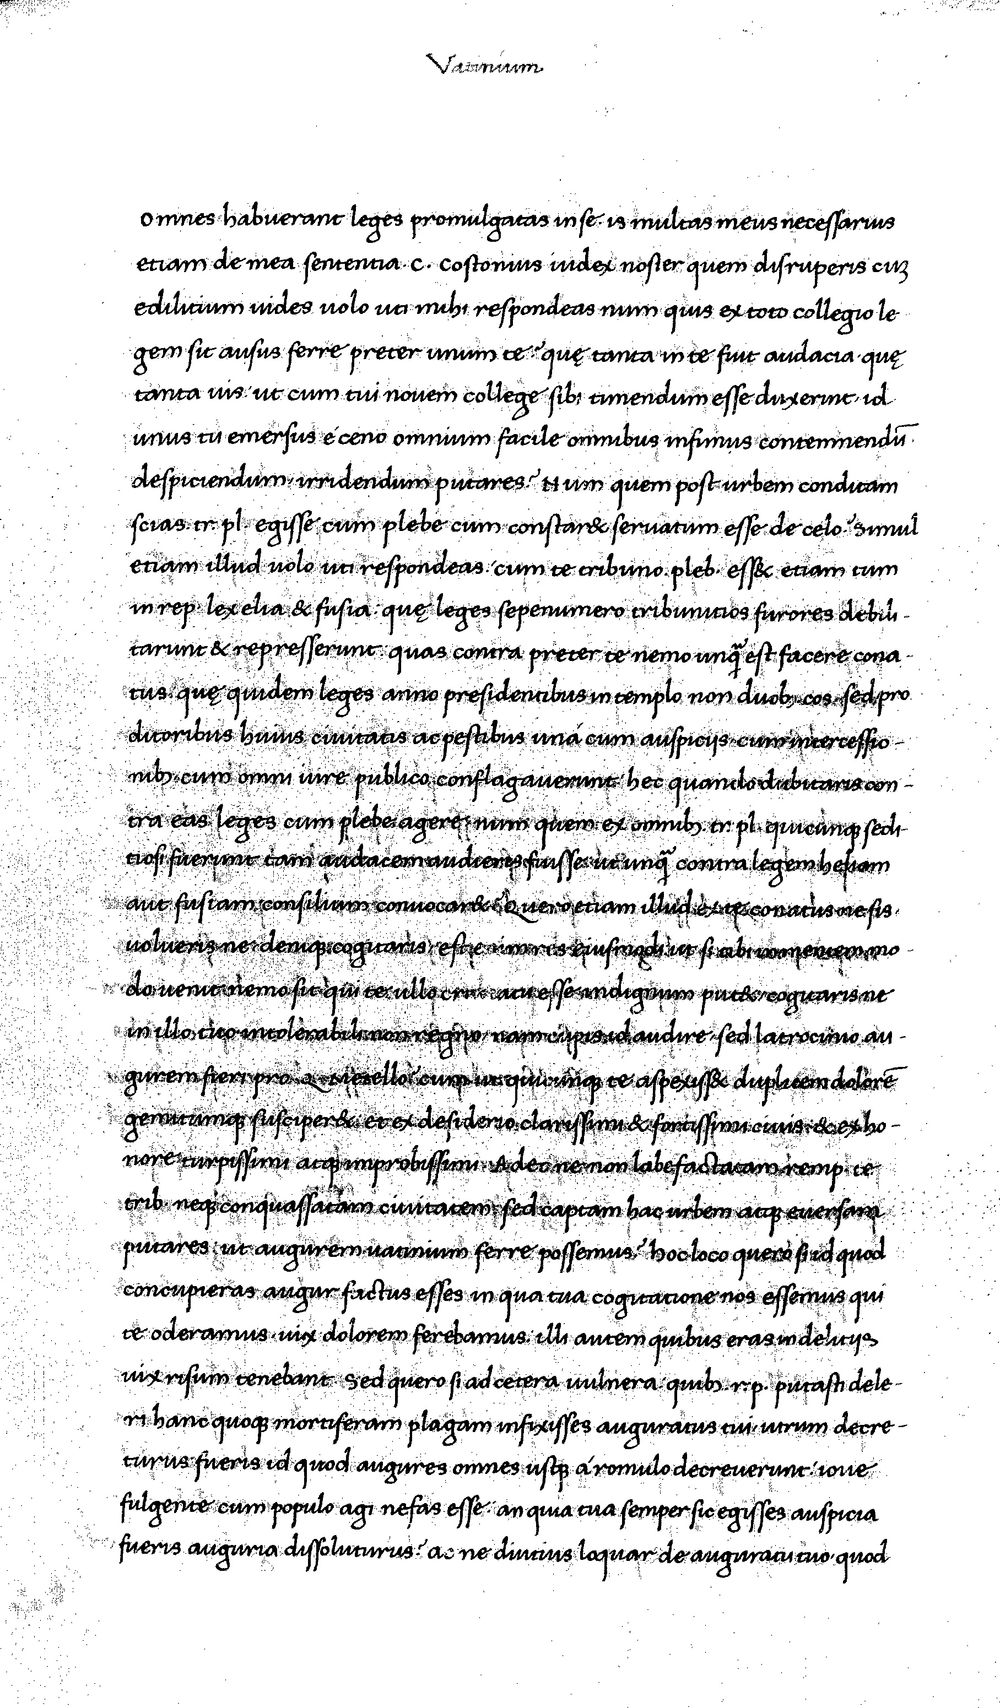 Vatinium
omnes habuerant leges promulgatas in se. is multas meus necessarius
etiam de mea sententia. C. Costonius iudex noster quem disruperis cuȝ
edilicium uides uolo uti mihi respondeas num quis ex toto collegio le
gem sit ausus ferre preter unum te? quę tanta in te fuit audacia quę
tanta uis ut cum tui nouem college sibi timendum esse duxerint id
unus tu emersus é ceno omnium facile omnibus infimus contemnendū.
despiciendum irridendum putares? Num quem post urbem conditam
scias tr. pl. egisse cum plebe cum constar& seruatum esse de celo? Simul
etiam illud uolo uti respondeas. cum te tribuno. pleb. ess& etiam tum
in rep. lex elia & fusia. quę leges sepenumero tribunitios furores debili-
tarunt & represserunt. quas contra preter te nemo unq̄ est facere cona-
tus. quę quidem leges anno presidentibus in templo non duobȝ cos. sed pro
ditoribus huius ciuitatis ac pestibus uná cum auspicijs cum intercessio-
nibȝ cum omni iure publico conflagauerunt. hec quando dubitaris con-
tra eas leges cum plebe agere. num quem ex omnibȝ tr. pl. quicunqȝ sedi-
tiosi fuerunt tam audacem audieris fuisse ut unq̄ contra legem heliam
aut fusiam consilium conuocar&? Quero etiam illud ex te conatus ne sis.
uolueris ne. deniqȝ cogitaris. est eiusmodi ut si tibi mo-
do uenit nemo sit qui te ullo esse indignum put& cogitaris ne
in illo tuo intolerabili non regno. nam cupis id audire. sed latrocinio au-
gurem fieri pro Q. Metello? cum ut quicunqȝ te aspexiss& duplicem dolorē
gemitumqȝ susciper&. et ex desiderio clarissimi & fortissimi ciuis. & ex ho-
nore turpissimi atqȝ improbissimi. Adeo ne non labefactatam remp. te
trib. neqȝ conquassatam ciuitatem. sed captam hac urbem atqȝ euersam
putares. ut augurem uatinium ferre possemus? hoc loco quero si id quod
concupieras augur factus esses in qua tua cogitatione nos essemus qui
te oderamus uix dolorem ferebamus. illi autem quibus eras in delitijs
uix risum tenebant. Sed quero si ad cetera uulnera. quibȝ. r.p. putasti dele-
ri hanc quoqȝ mortiferam plagam infixisses auguratus tui. utrum decre-
turus fueris id quod augures omnes usqȝ á romulo decreuerunt. ioue
fulgente cum populo agi nefas esse. an quia tua semper sic egisses auspicia
fueris auguria dissoluturus? ac ne diutius loquar de auguratu tuo quod